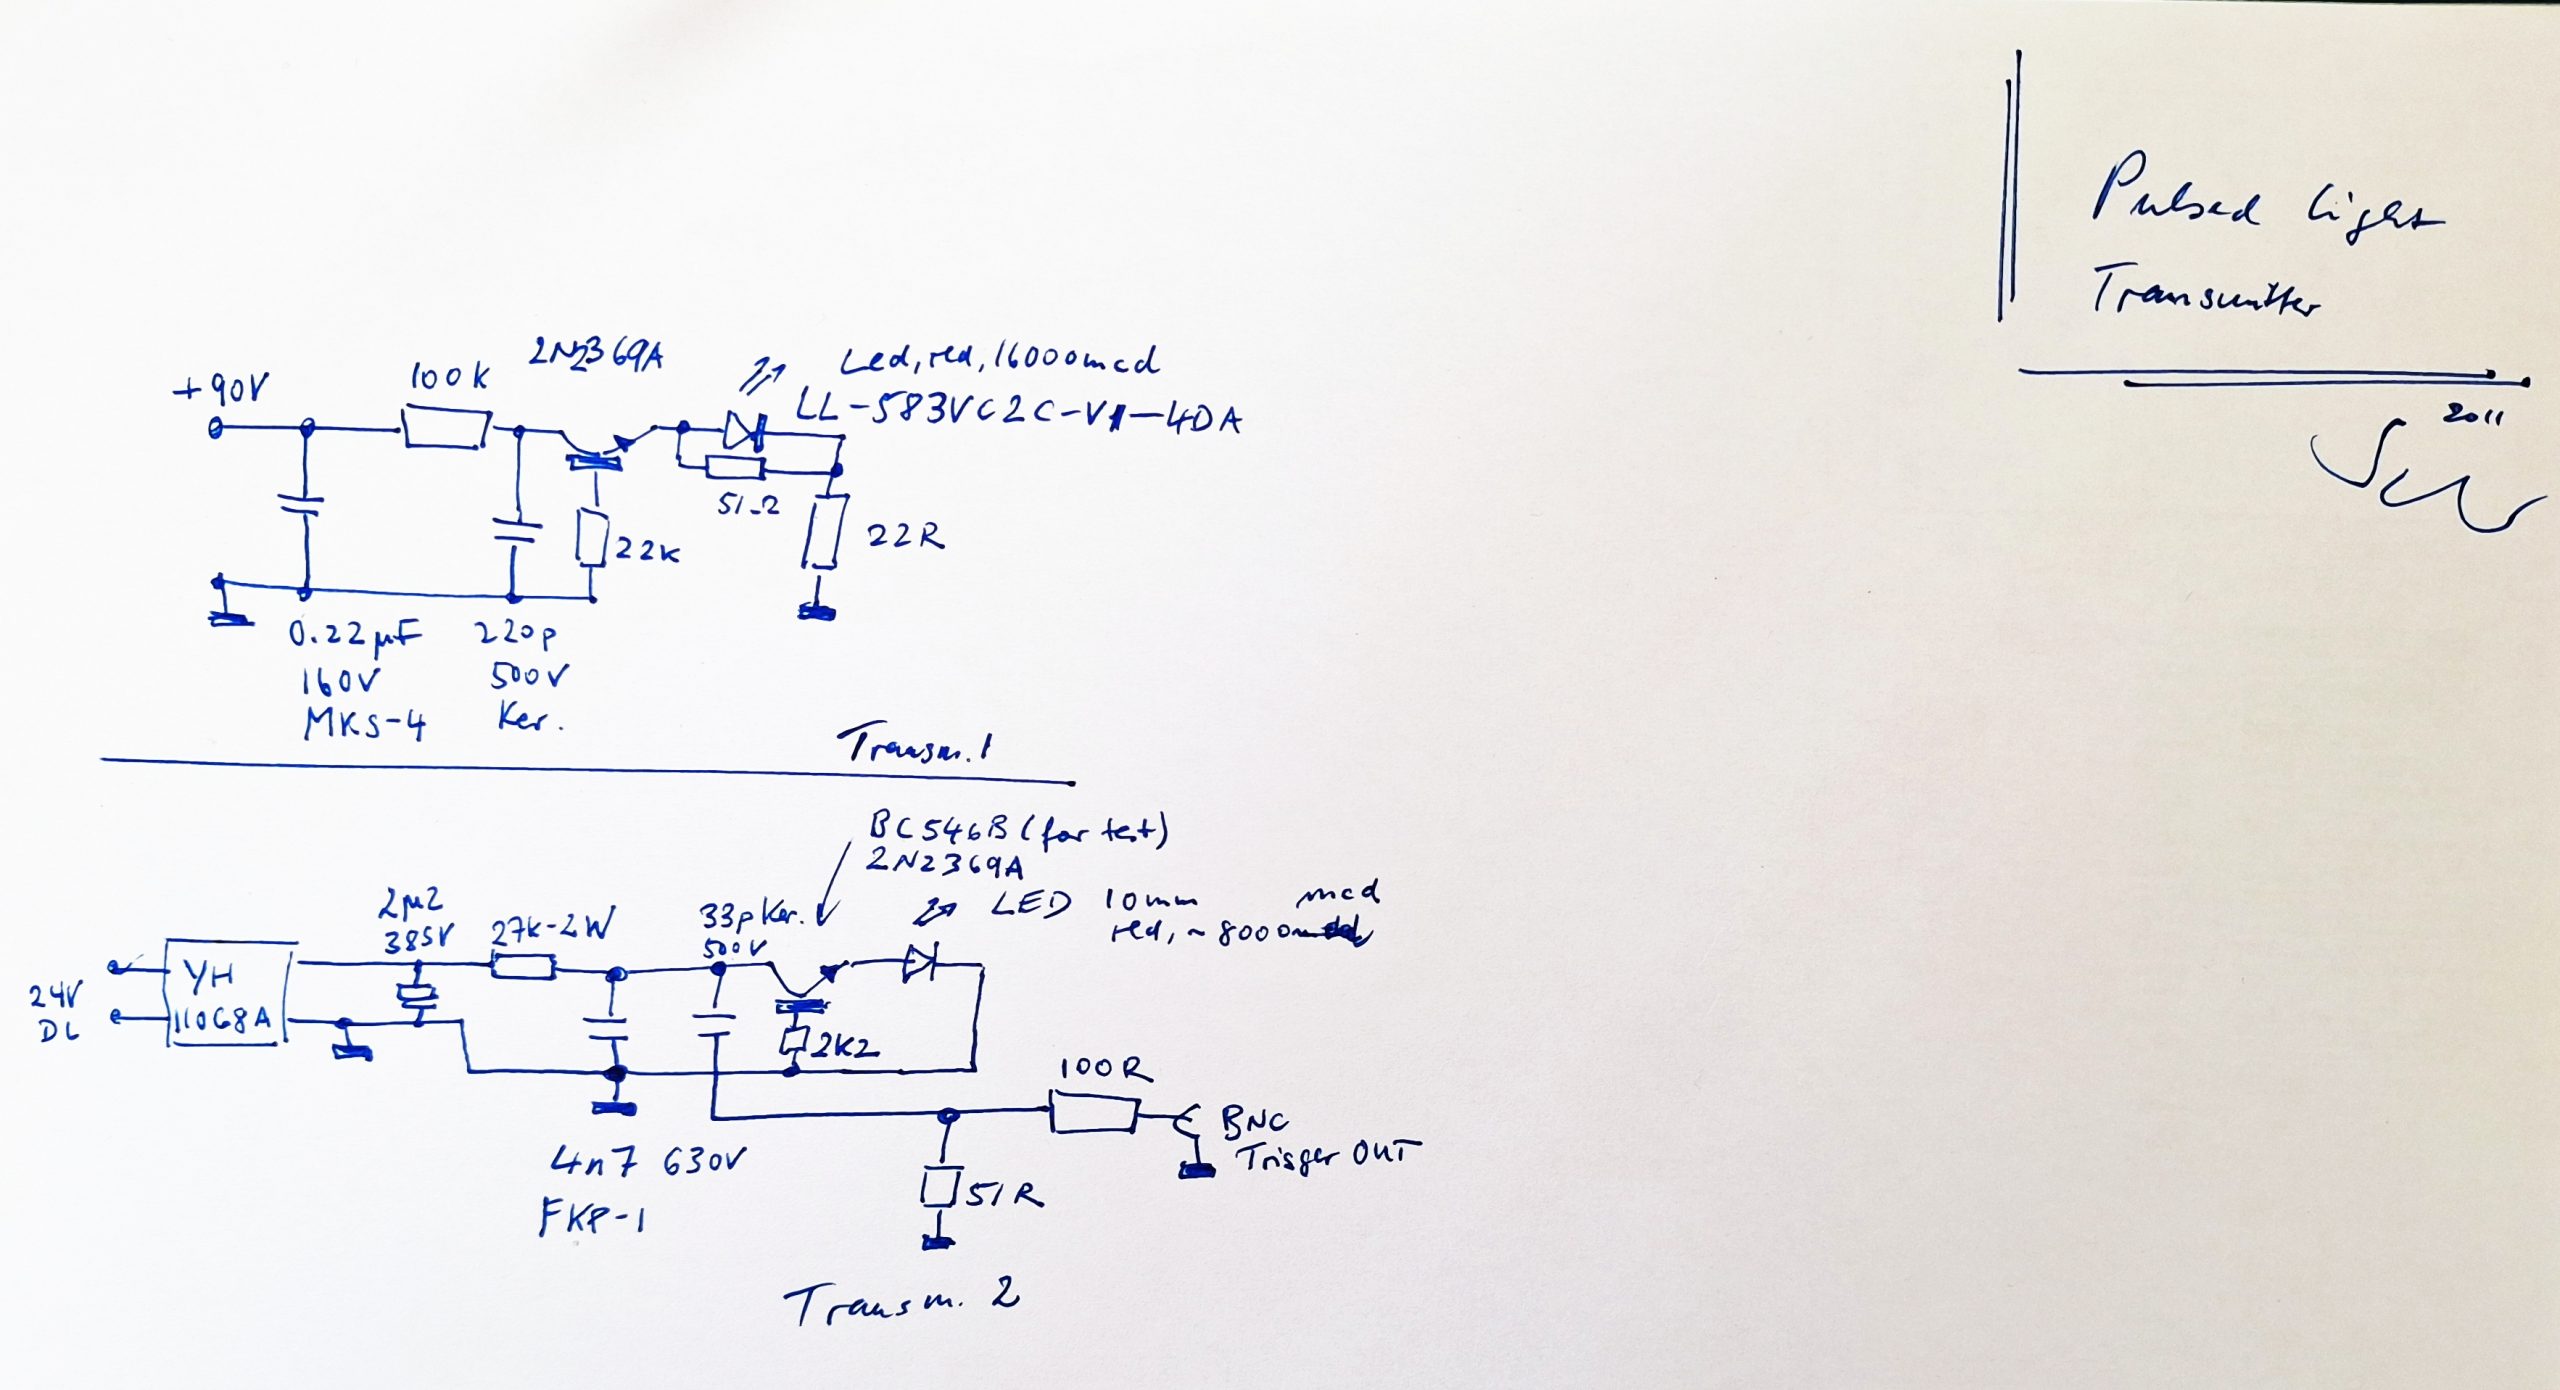 Pulsed Light
Transmitter
2011
+90V
100K
2N2369A
Led, red, 16000mcd
LL-583VC2C-V1-4DA
51Ω
22K
22R
0.22µF
160V
MKS-4
220p
500V
Ker.
Transm. 1
BC546B (for test)
2N2369A
LED 10mm mcd
red, ~8000
2µ2
385V
27K-2W
33p Ker.
500V
24V
DC
YH
11068A
2K2
100R
BNC
Trigger OUT
51R
4n7 630V
FKP-1
Transm. 2